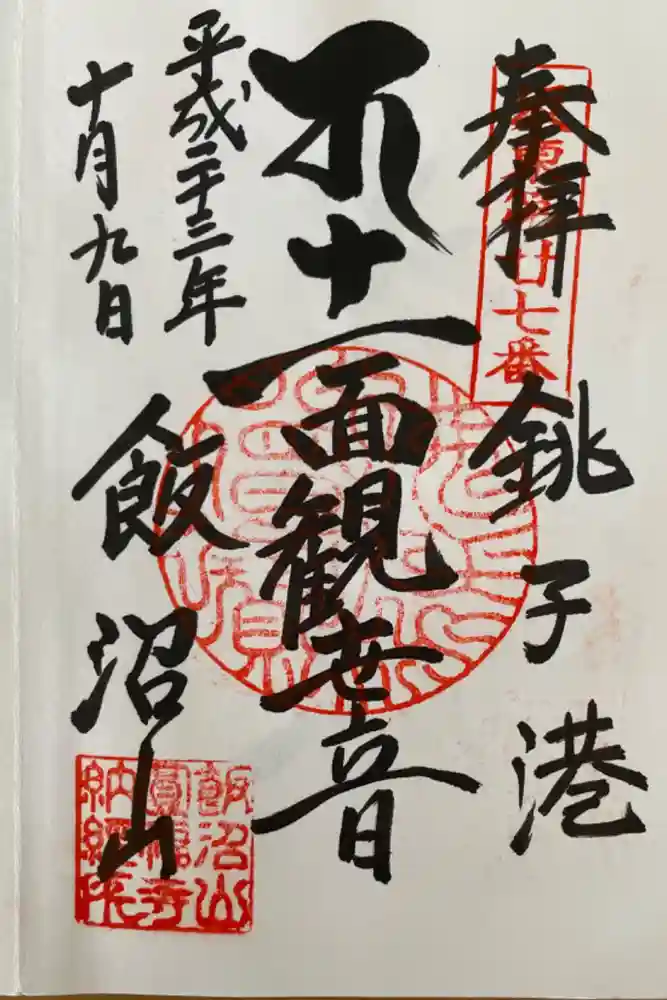 奉拝
銚子港
十一面観世音
平成二十三年
十月九日
飯沼山
廿七番
飯沼山
圓福寺
納経印